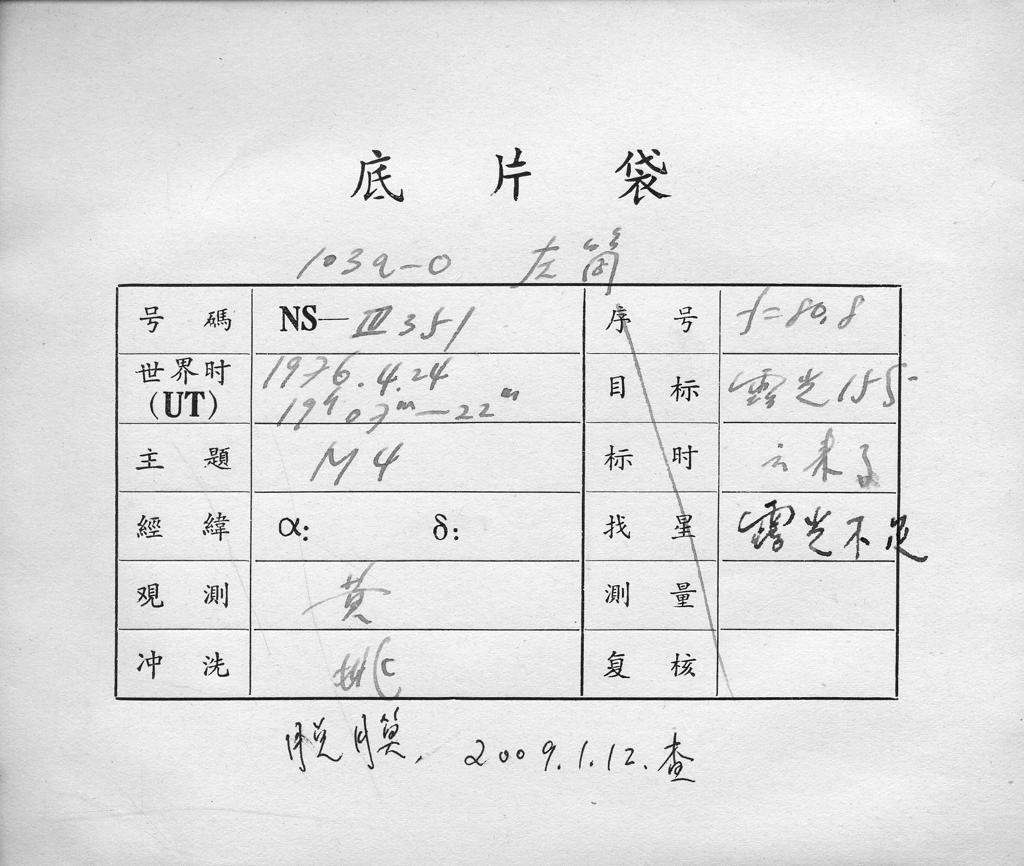 底 片 袋
103a-O 左筒
号 碼 NS—Ⅲ351 序 号 f=80.8
世界时(UT) 1976.4.24 19h07m—22m 目 标 露光15分
主 題 M4 标 时 云来了
經 緯 α: δ: 找 星 露光不足
观 測 黄 測 量
冲 洗 复 核
脱膜. 2009.1.12.查